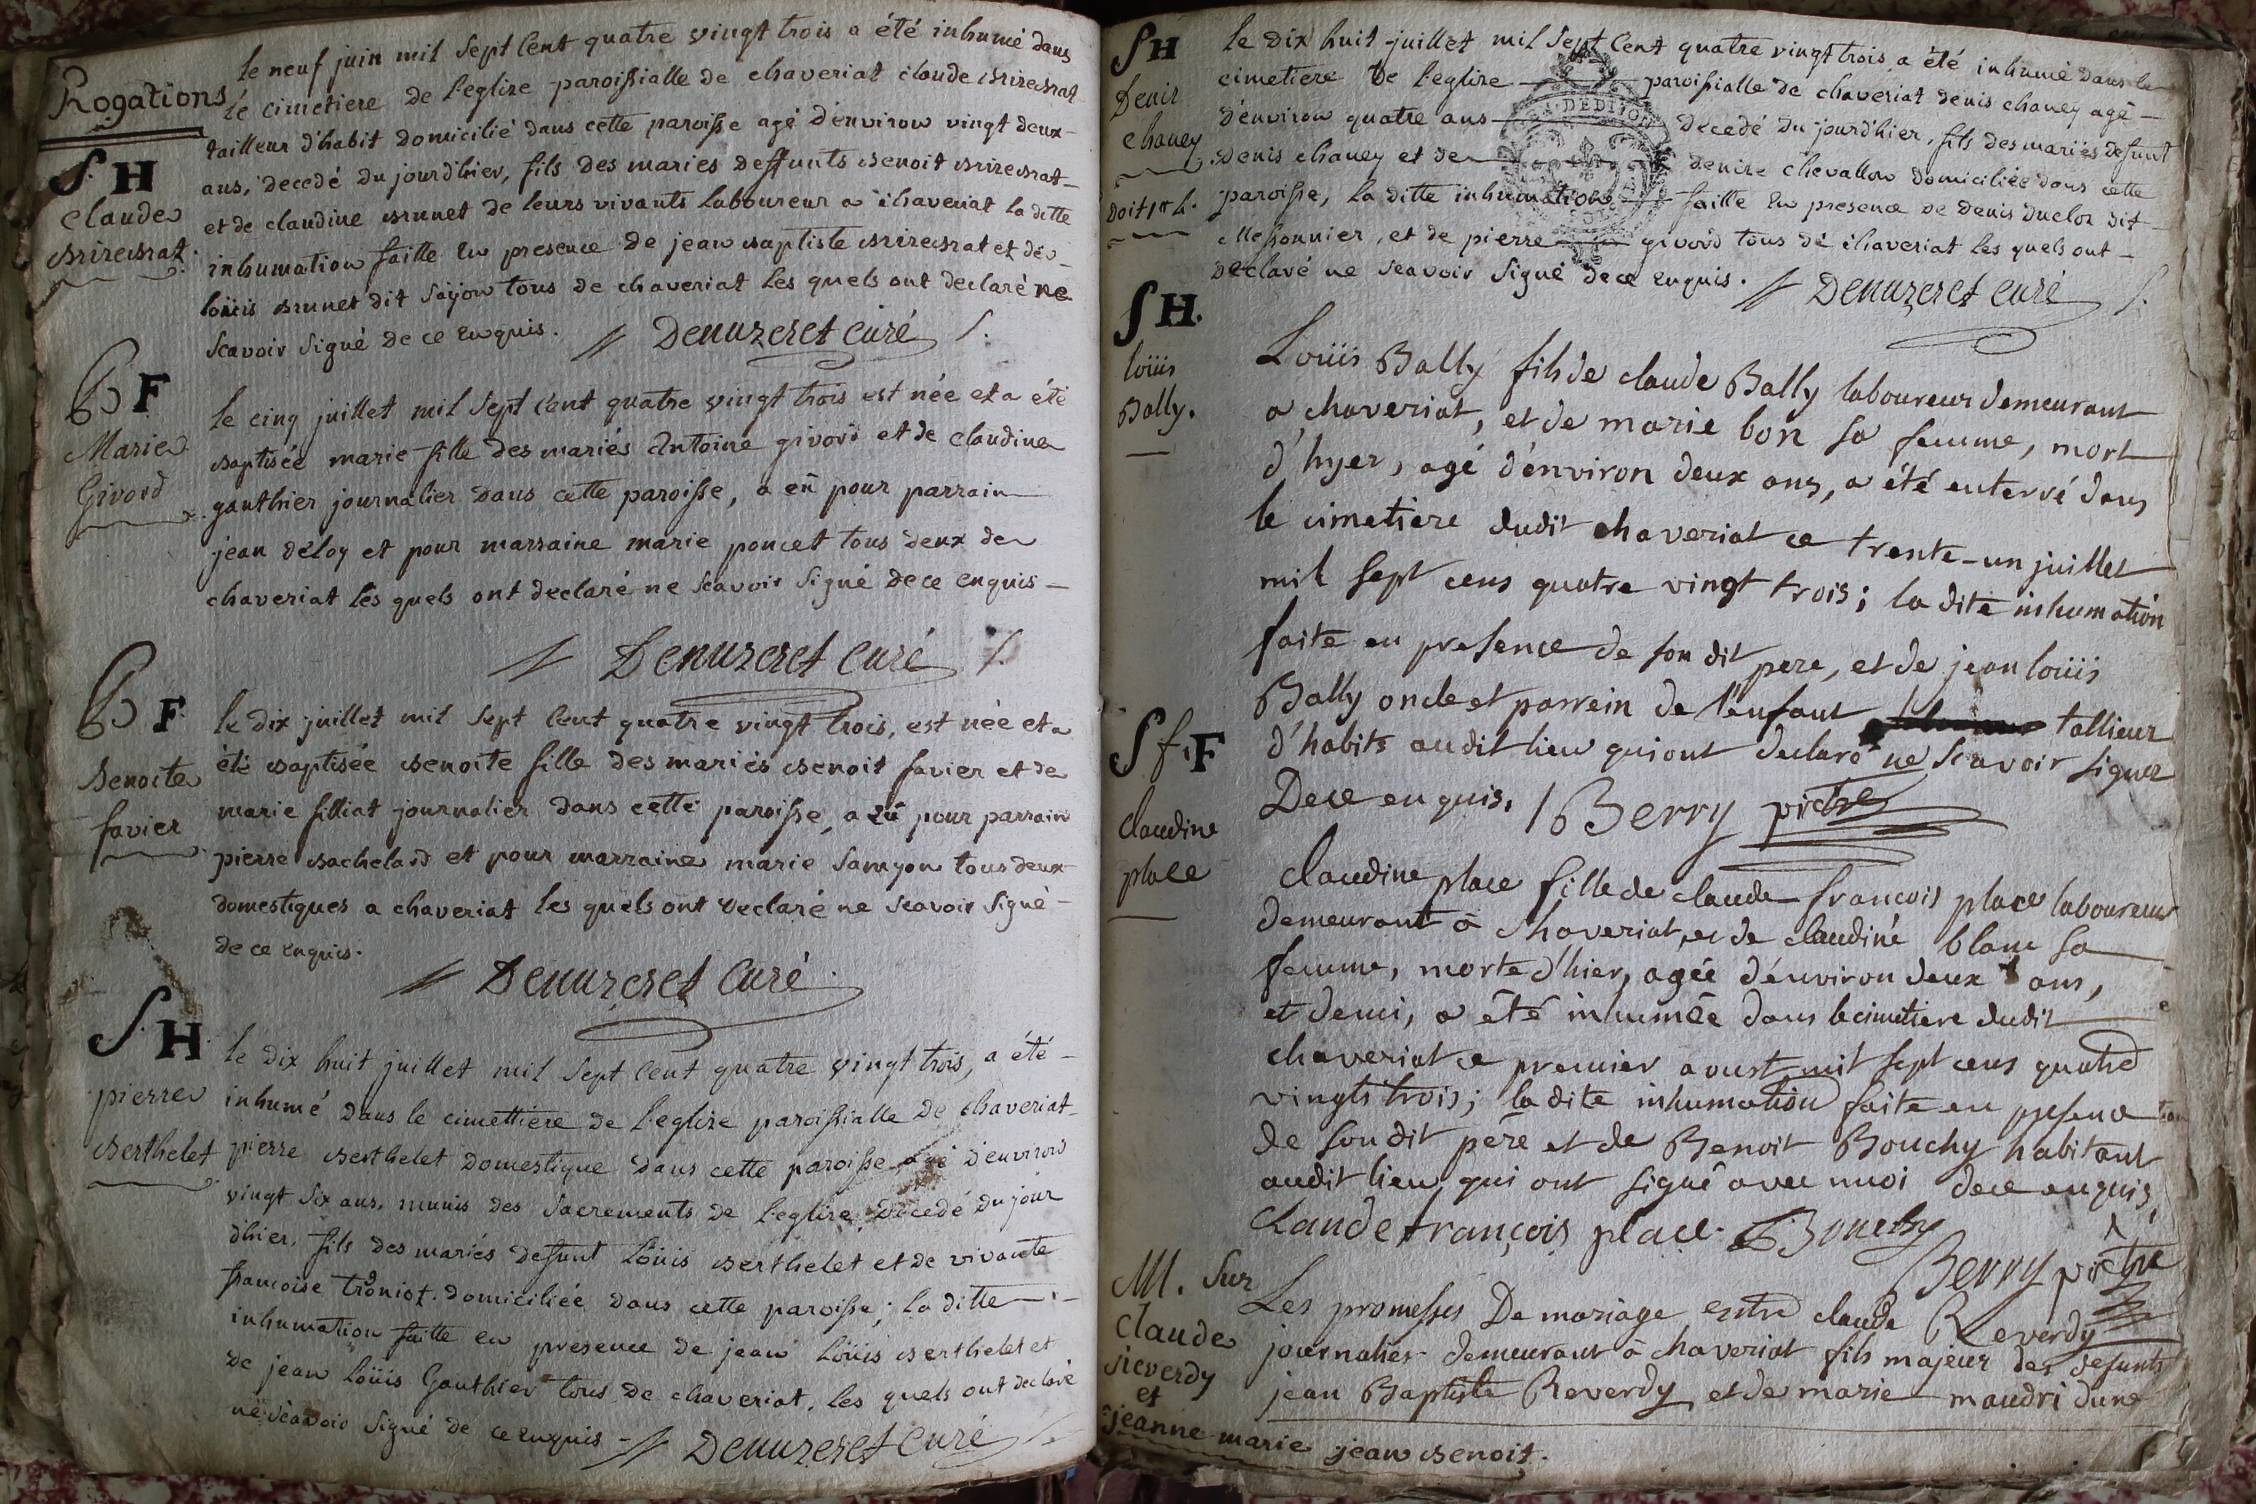 Rogations
S. H
Claude
Brirebrat.
le neuf juin mil Sept Cent quatre vingt trois a été inhumé dans
le cimetiere de l'eglise paroissialle de chaveriat claude Brirebrat
tailleur d'habit domicilié dans cette paroisse agé d'environ vingt deux
ans, decedé du jourd'hier, fils des mariés deffunts Benoit Brirebrat
et de claudine Brunet de leurs vivants laboureur a chaveriat la ditte
inhumation faitte en presence de jean Baptiste Brirebrat et de
loüis Brunet dit tous de chaveriat les quels ont declaré ne
scavoir signé de ce enquis. Denuzeret curé
B F
Marie
Givord
le cinq juillet mil Sept Cent quatre vingt trois est née et a été
Baptisée marie fille des mariés Antoine givord et de claudine
gauthier journalier dans cette paroisse, a eû pour parrain
jean déloy et pour marraine marie poncet tous deux de
chaveriat les quels ont declaré ne scavoir signé de ce enquis
Denuzeret curé
B F
Benoite
favier
le dix juillet mil Sept Cent quatre vingt trois, est née et a
été Baptisée Benoite fille des mariés Benoit favier et de
marie filliat journalier dans cette paroisse, a eû pour parrain
pierre Bachelard et pour marraine marie Samyon tous deux
domestiques a chaveriat les quels ont declaré ne scavoir signé
de ce enquis.
Denuzeret Curé
S. H
pierre
Berthelet
le dix huit juillet mil Sept Cent quatre vingt trois, a été
inhumé dans le cimettiere de l'eglise paroissialle de chaveriat
pierre Berthelet domestique dans cette paroisse agé d'environ
vingt six ans, munis des Sacrements de l'eglise, decedé du jour
d'hier, fils des mariés defunt loüis Berthelet et de vivante
francoise domiciliée dans cette paroisse; la ditte
inhumation faitte en presence de jean loüis Berthelet et
de jean loüis Gauthier tous de chaveriat, les quels ont declaré
ne scavoir signé de ce enquis Denuzeret curé
S H
Denis
chaney
le dix huit juillet mil Sept Cent quatre vingt trois a été inhumé dans le
cimetiere de l'eglise paroissialle de chaveriat denis chaney agé
d'environ quatre ans decedé du jourd'hier, fils des mariés defunt
Denis chaney et de denize chevallon domiciliée dans cette
paroisse, la ditte inhumation faitte en presence de denis duclos dit
Messonnier, et de pierre givord tous de chaveriat les quels ont
declaré ne scavoir signé de ce enquis. Denuzeret curé
S H.
loüis
Bally.
Loüis Bally fils de claude Bally laboureur demeurant
a chaveriat, et de marie bon sa femme, mort
d'hyer, agé d'environ deux ans, a été enterré dans
le cimetiere dudit chaveriat ce trente-un juillet
mil sept cens quatre vingt trois; la dite inhumation
faite en presence de son dit pere, et de jean loüis
Bally oncle et parrein de l'enfant tallieur
d'habits audit lieu qui ont declaré ne scavoir signer
Dece enquis. Berry prêtre
S f. F
Claudine
place
Claudine place fille de claude françois place laboureur
demeurant à chaveriat, et de claudine blanc sa
femme, morte d'hier, agée d'environ deux ans,
et demi, a été inhumée dans le cimetiere dudit
chaveriat ce premier aoust mil sept cens quatre
vingts trois; la dite inhumation faite en presence
de son dit pere et de Benoit Bouchy habitant
audit lieu qui ont signé avec moi dece enquis
Claude françois place. B Bouchy
Berry prêtre
M. Sur
Claude
Reverdy
et
jeanne marie jean Benoit.
Les promesses De mariage entre claude Reverdy
journalier demeurant à chaveriat fils majeur des defunts
jean Baptiste Reverdy et de marie maudri d'une